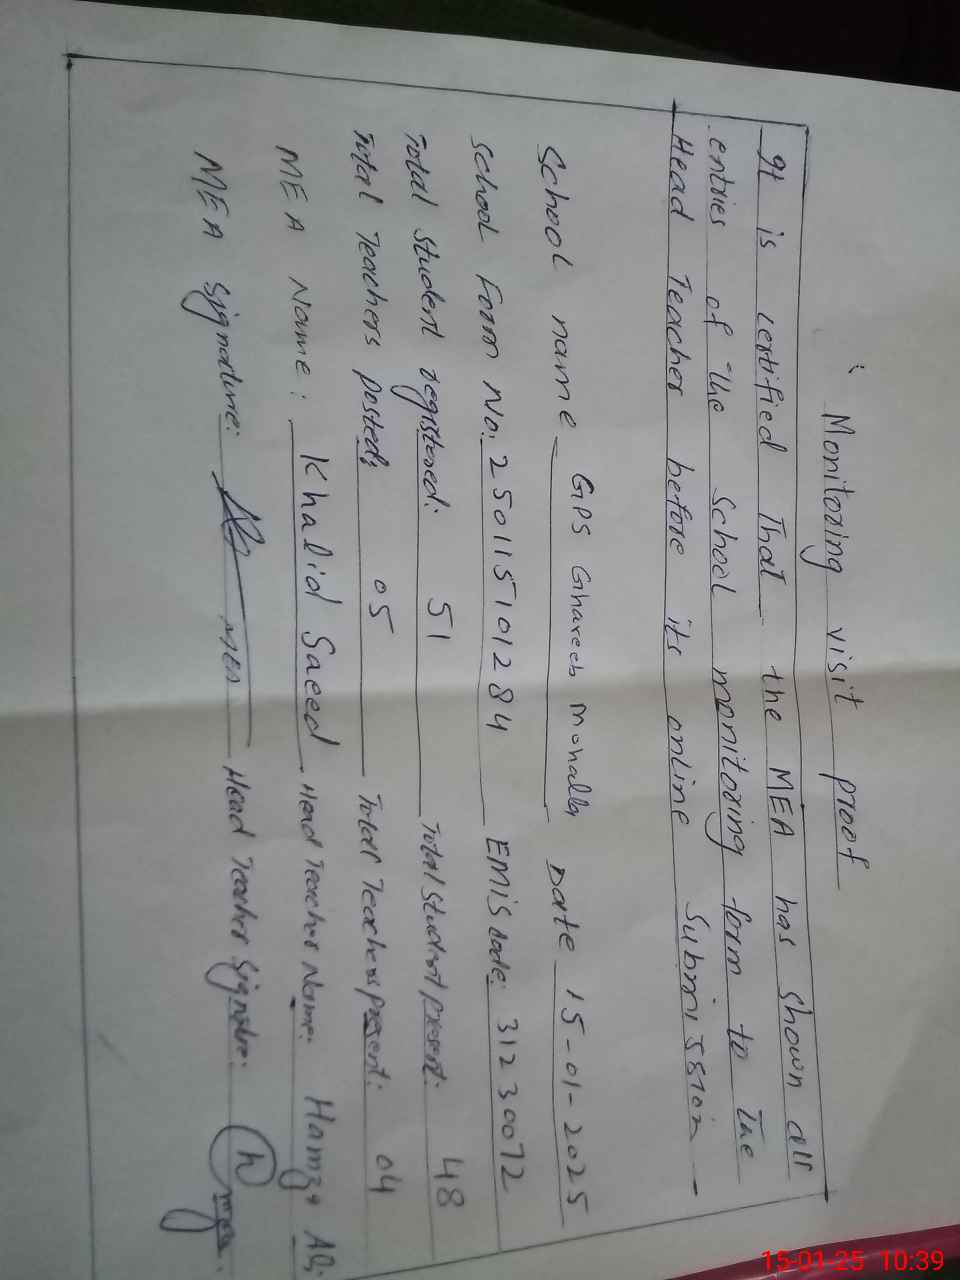 Monitoring visit proof
It is certified That the MEA has shown all
entries of the School monitoring form to The
Head Teacher before its online Submission
School name GPS Ghareeb Mohalla Date 15-01-2025
School Form No: 250115101284 EMIS code: 31230072
Total Student registered: 51 Total Student present: 48
Total Teachers Posted: 05 Total Teachers present: 04
MEA Name: Khalid Saeed Head Teacher Name: Hamza Ali
MEA Signature: Head Teacher Signature:
15-01-25 10:39